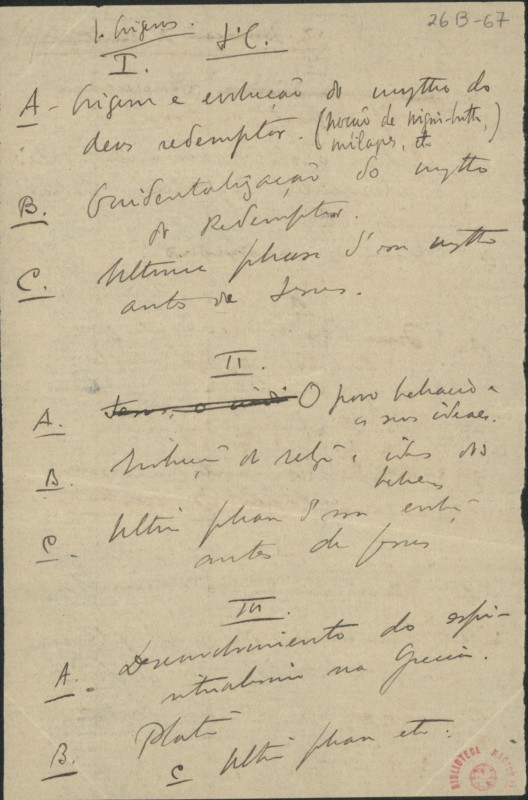 26B-67
1. Origens.
J.C.
I.
A - Origem e evolução do mytho do
deus redemptor. (noção de virgin-birth,
milagres, etc
B. Occidentalização do mytho
do Redemptor.
C. Ultima phase d'esse mytho
antes de Jesus.
II.
A. O povo hebraico e
as suas ideas.
B. Evolução da relig. e ideas dos
hebreus
C. Ultima phase d'essa evoluç.
antes de Jesus
III.
A. Desenvolvimento do espi-
ritualismo na Grecia.
B. Platão
C Ultima phase etc.
BIBLIOTECA NACIONAL